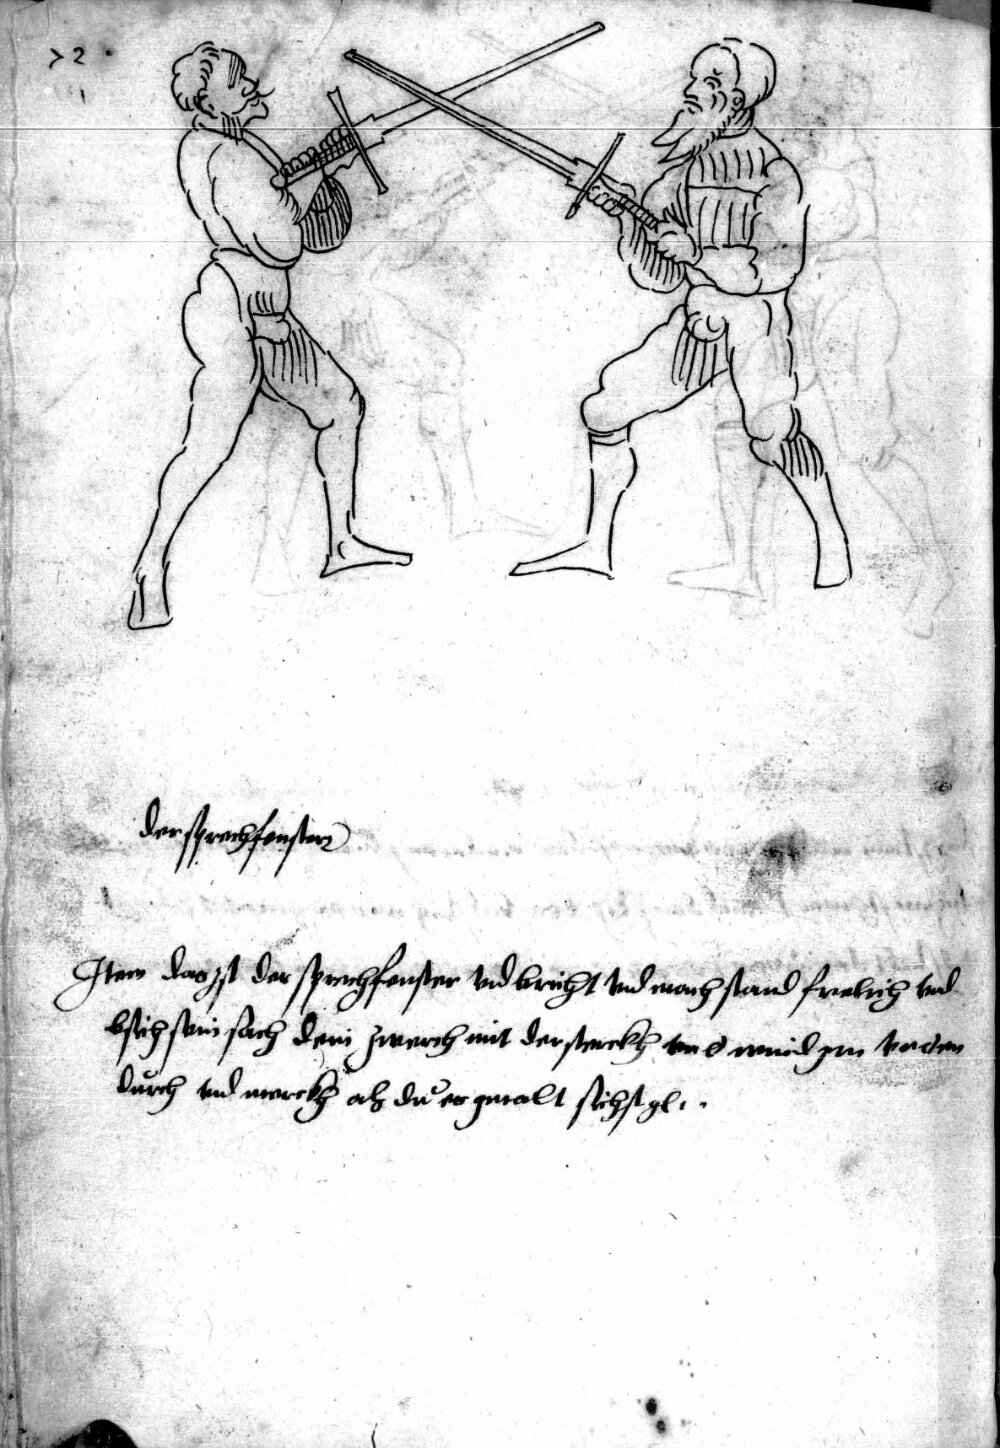 72
der sprechfenster
Item das ist der sprechfenster vnd bricht vnd mach stand frelich vnd
bsich sein sach dem zwerch mit der sterckh vnd wind im
durch vnd merckh als du es gmalt sichst